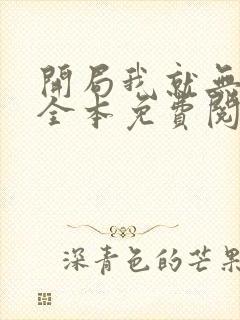 開局我就無
全本免費閱
深青色的芒果